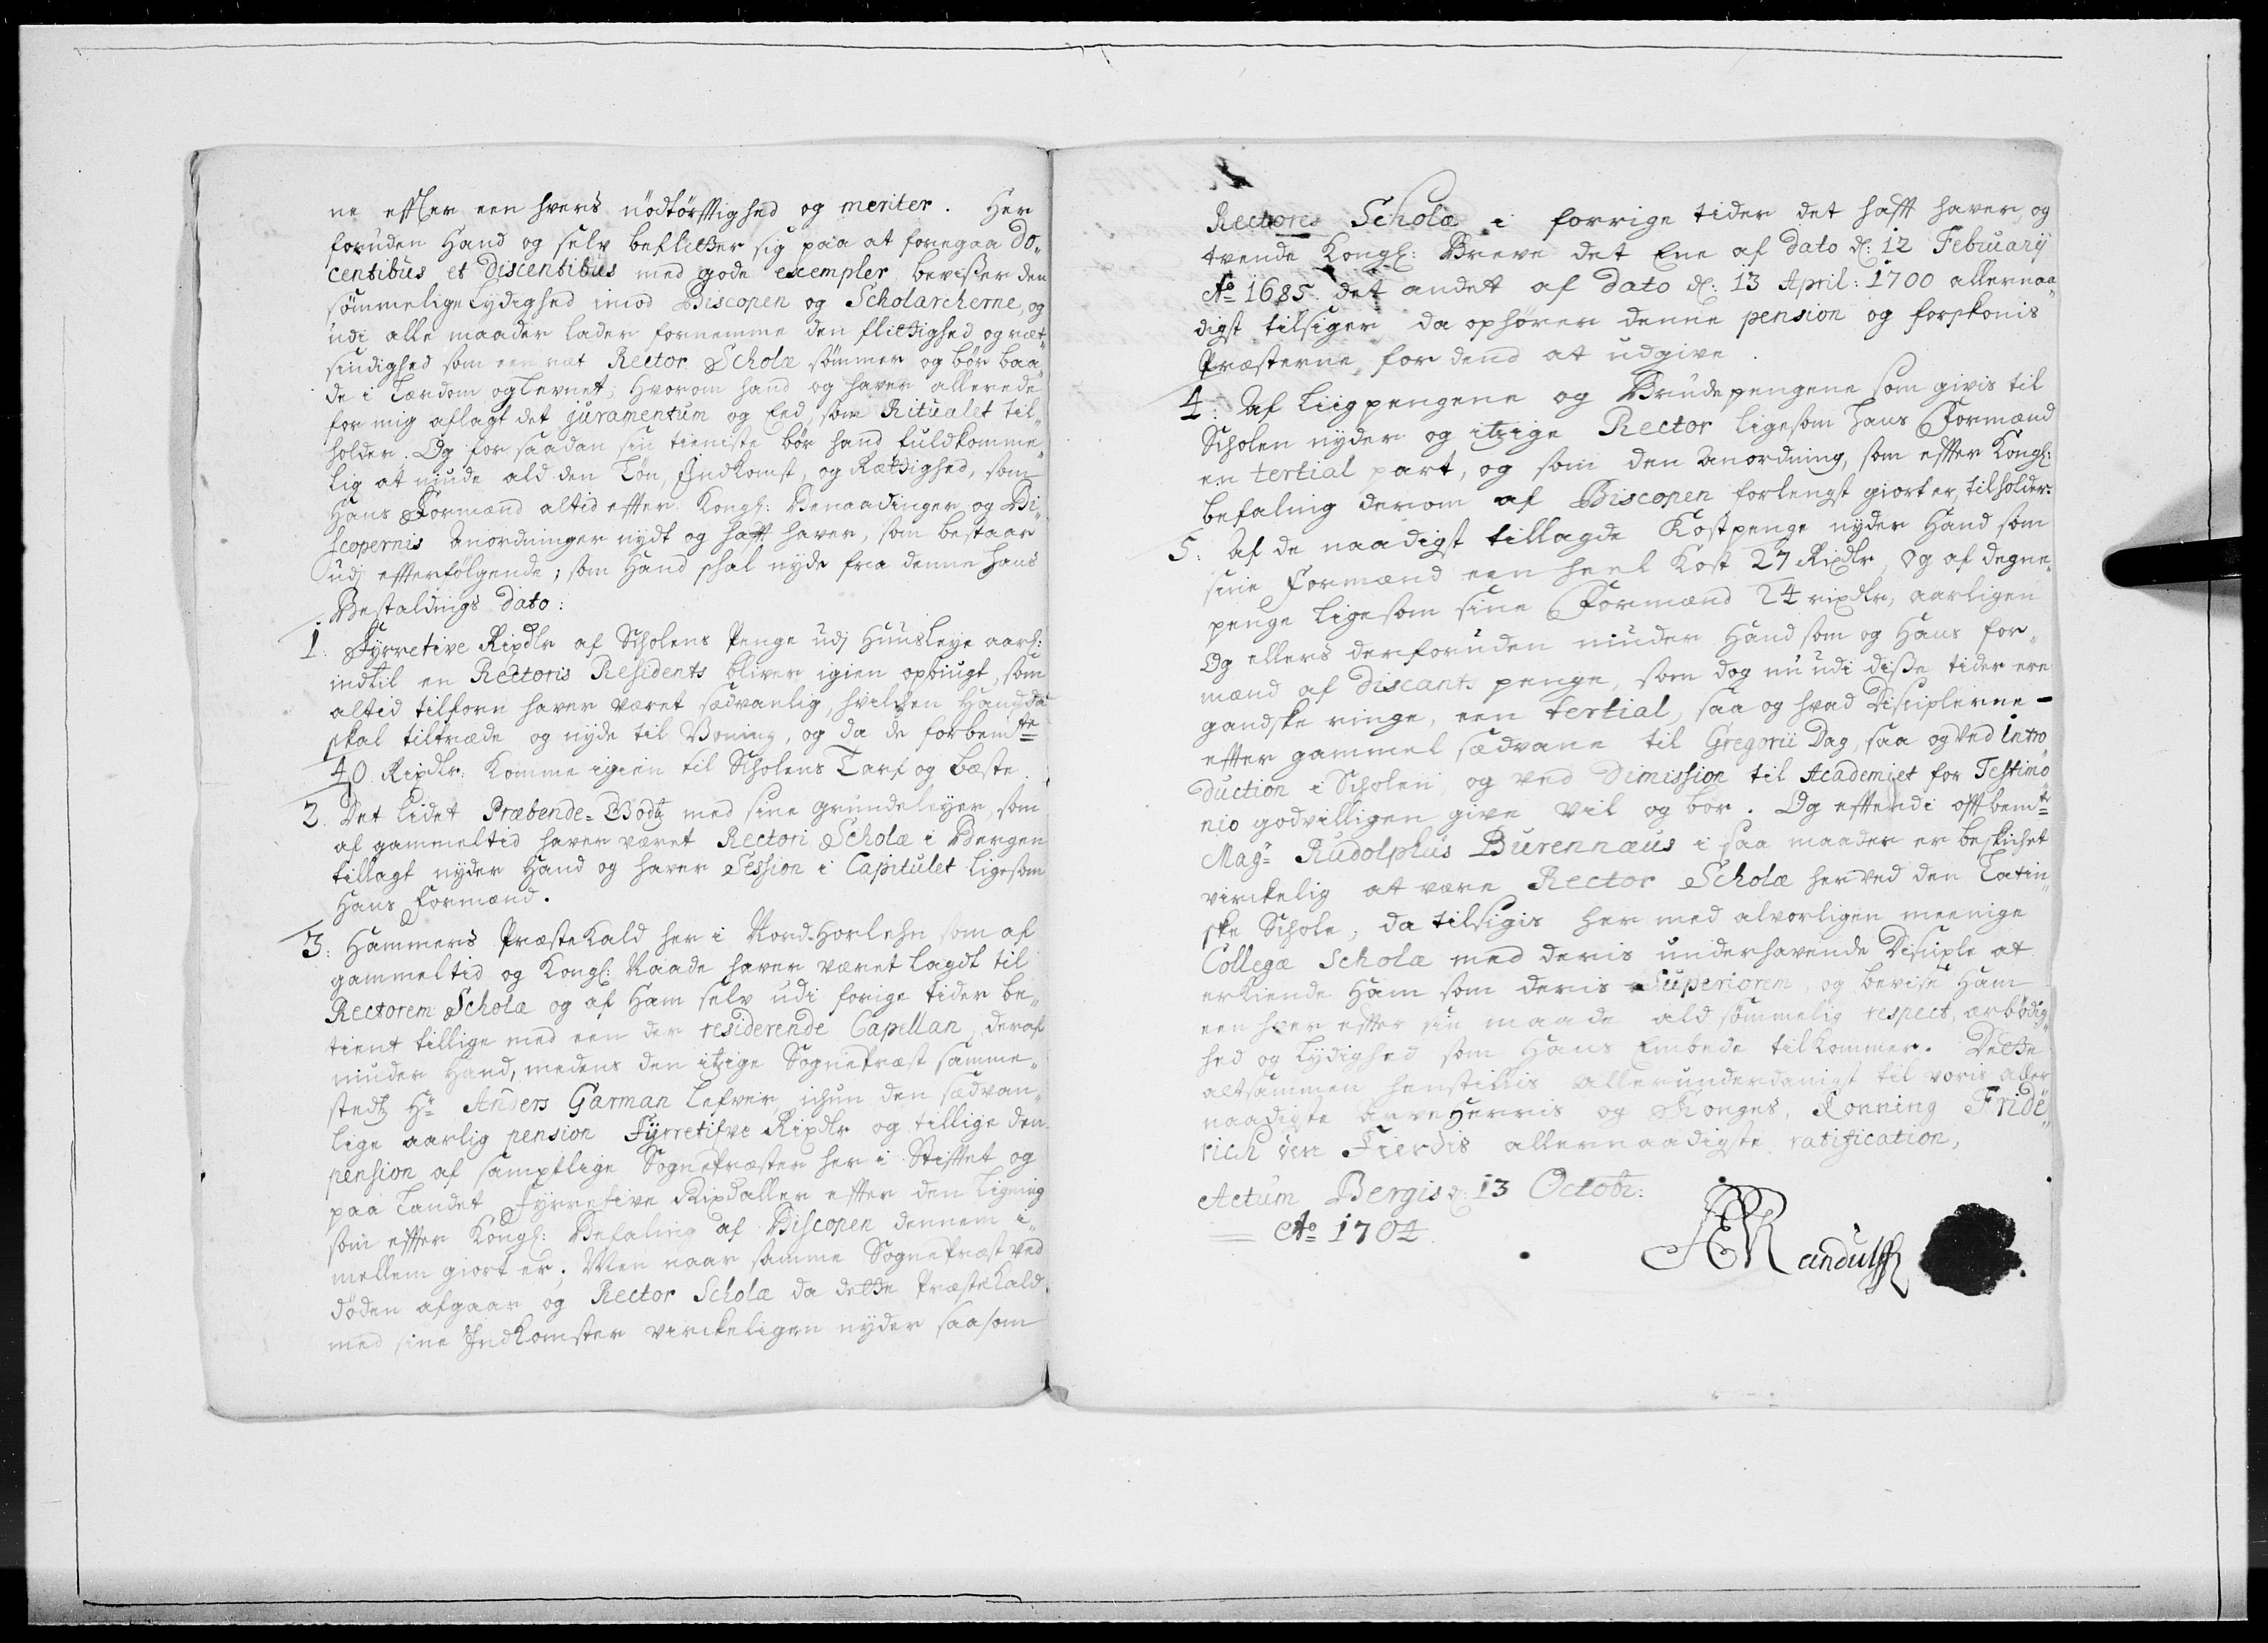 ne effter een hvers nödtörfftighed og meriter. Her
foruden Hand og selv beflitter sig paa at foregaa Do„
centibus et Discentibus med gode exempler bevisser den
sömmelige Lydighed imod Biscopen og Scholarcherne, og
udi alle maader lader fornemme den flittighed og ræt„
sindighed som een ræt Rector Scholæ sömmer og bör baa„
de i Lærdom og Levnet, hvorom hand og haver allerede
for mig aflagt det juramentum og Eed, som Ritualet til„
holder. Og for saadan sin tieniste bör hand fuldkomme„
lig at niude ald den Lön, Indkomst, og Rættighed, som
Hans Formænd altid effter Kongl: Benaadinger og Bi„
scopernis Anordninger nydt og hafft haver, som bestaar
udj effterfölgende; som Hand skal nyde fra denne hans
Bestaldings Dato:
1. Fyrretive Rixdlr af Scholens Penge udj Huusleye aarl:
indtil en Rectoris Residents bliver igien opbiugt, som
altid tilforn haver været sædvanlig, hvilken Hand da
skal tiltræde og nyde til Boning, og da de forbemte
40 Rixdlr. komme igien til Scholens Tarf og bæste.
2. Det lidet Præbende-Bodtz med sine grundeleyer, som
af gammeltid haver været Rectori Scholæ i Bergen
tillagt nyder Hand og haver Session i Capitulet ligesom
Hans Formænd.
3: Hammers Præstekald her i Nord-Horlehn som af
gammeltid og Kongl: Naade haver været lagdt til
Rectorem Scholæ og af Ham selv udi forige tider be„
tient tillige med een der residerende Capellan, deraf
niuder Hand, medens den itzige Sognepræst samme„
stedtz Hr Anders Garman lefver, ichun den sædvan„
lige aarlig pension Fyrretifve Rixdlr og tillige den
pension af samptlige Sognepræster her i Stifftet og
paa Landet Fyrretive Rixdaller effter den Ligning
som effter Kongl: Befaling af Biscopen dennem i„
mellem giort er; Men naar samme Sognepræst ved
döden afgaar og Rector Scholæ da dette Præstekald
med sine Indkomster virckeligen nyder saasom
Rectores Scholæ i forrige tider det hafft haver, og
tvende Kongl: Breve det Ene af Dato d: 12 Februarij
Ao 1685. det andet af Dato d: 13 April: 1700 allernaa„
digst tilsiger da ophörer denne pension og forskonis
Præsterne for dend at udgive.
4: Af Liigpengene og Brudepengene som givis til
Scholen nyder og itzige Rector ligesom hans Formænd
en tertial part, og som den Anordning, som effter Kongl:
befaling derom af Biscopen forlengst giort er, tilholder.
5: Af de naadigst tillagde Kostpenge nyder Hand som
sine Formænd een heel Kost 27 Rixdlr, Og af degne„
penge ligesom sine Formænd 24 rixdlr, aarligen
Og ellers derforuden niuder Hand som og Hans for„
mænd af Discants penge, som dog nu udi disse tider ere
gandske ringe, een tertial, saa og hvad Disciplerne
effter gammel sædvane til Gregorii Dag, saa og ved Intro„
duction i Scholen, og ved Dimission til Academiet for Testimo„
nio godvilligen give vil og bör. Og efftersom offtbemte
Magr Rudolphus Burennæus i saa maader er beskichet
virckelig at være Rector Scholæ her ved den Latin„
ske Schole, da tilsigis her med alvorligen meenige
Collegæ Scholæ med deris underhavende Disciple at
erkiende Ham som deris Superiorem, og bevise Ham
een hver effter sin maade ald sömmelig respect, ærbödig„
hed og Lydighed som Hans Embede tilkommer. Dette
altsammen henstillis allerunderdanigst til voris aller
naadigste Arve Herris og Konges, Konning Fride„
rich den Fierdis allernaadigste ratification,
Actum Bergis d: 13 Octobr:
Ao 1704.
Randulff